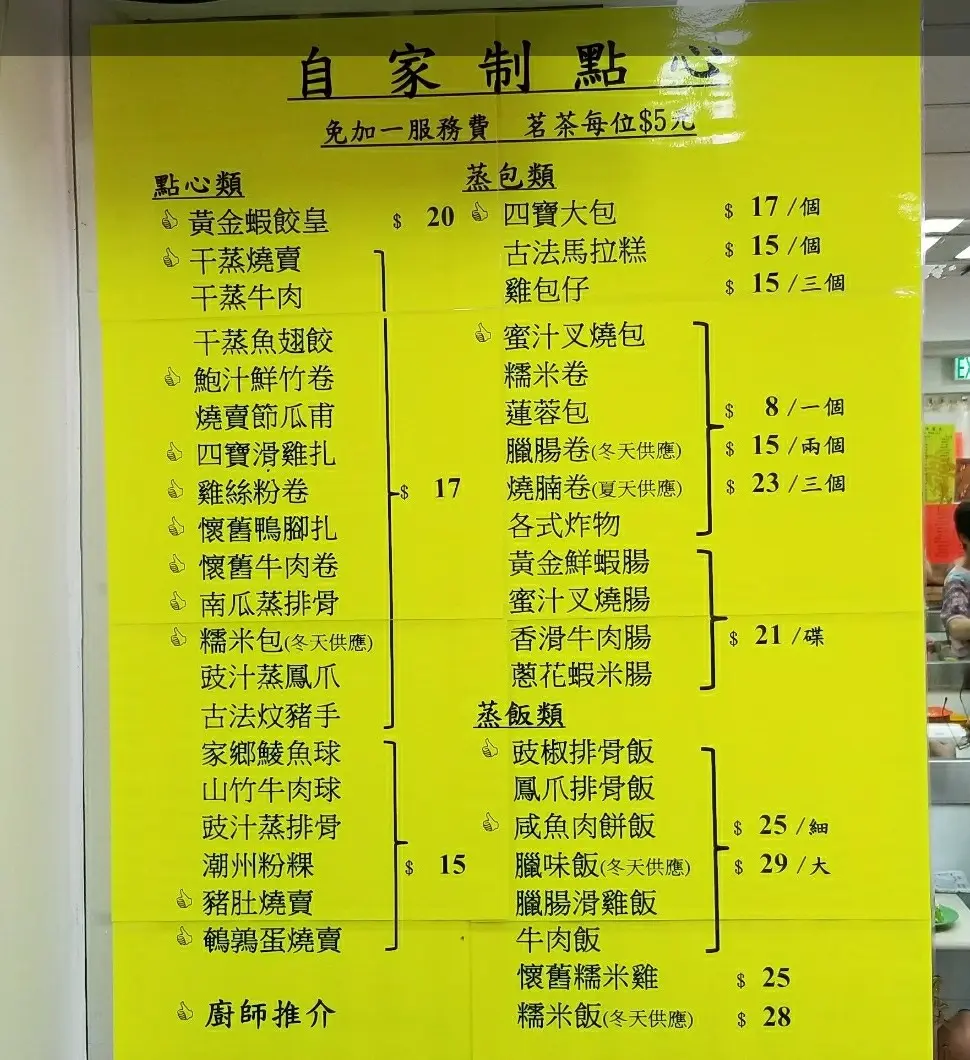 自家制點心
免加一服務費 茗茶每位$5元
點心類
👍 黃金蝦餃皇 $ 20
👍 干蒸燒賣
干蒸牛肉
干蒸魚翅餃
👍 鮑汁鮮竹卷
燒賣節瓜甫
👍 四寶滑雞扎
👍 雞絲粉卷 $ 17
👍 懷舊鴨腳扎
👍 懷舊牛肉卷
👍 南瓜蒸排骨
👍 糯米包(冬天供應)
豉汁蒸鳳爪
古法炆豬手
家鄉鯪魚球
山竹牛肉球
豉汁蒸排骨
潮州粉粿 $ 15
👍 豬肚燒賣
👍 鵪鶉蛋燒賣
👍 廚師推介
蒸包類
👍 四寶大包 $ 17 /個
古法馬拉糕 $ 15 /個
雞包仔 $ 15 /三個
👍 蜜汁叉燒包
糯米卷
蓮蓉包 $ 8 /一個
臘腸卷(冬天供應) $ 15 /兩個
燒腩卷(夏天供應) $ 23 /三個
各式炸物
黃金鮮蝦腸
蜜汁叉燒腸
香滑牛肉腸 $ 21 /碟
蔥花蝦米腸
蒸飯類
👍 豉椒排骨飯
鳳爪排骨飯
👍 咸魚肉餅飯 $ 25 /細
臘味飯(冬天供應) $ 29 /大
臘腸滑雞飯
牛肉飯
懷舊糯米雞 $ 25
糯米飯(冬天供應) $ 28